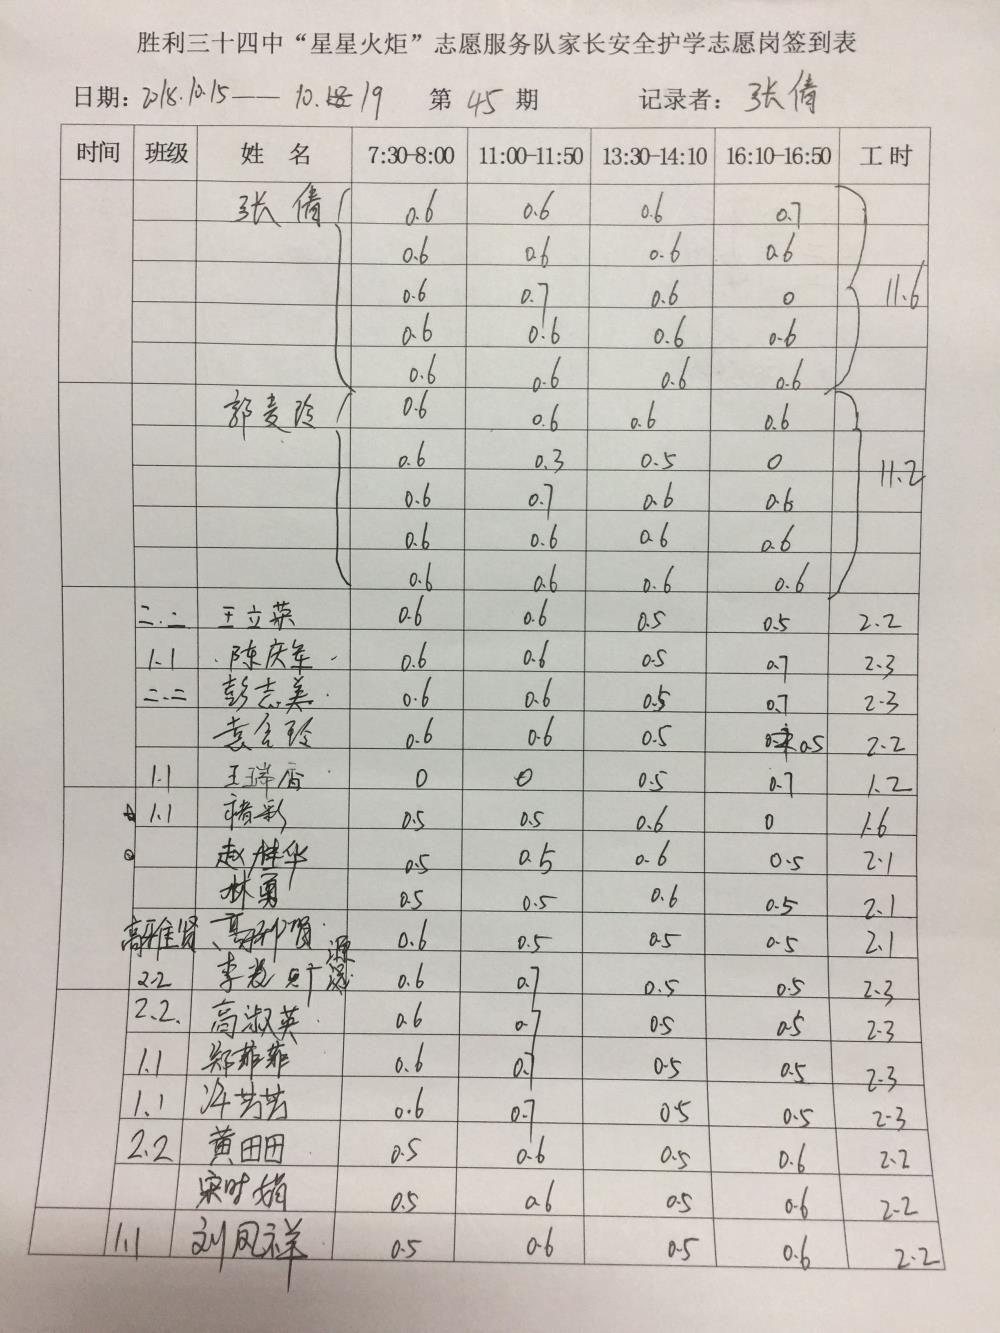 胜利三十四中“星星火炬”志愿服务队家长安全护学志愿岗签到表
日期：2018.10.15——10.19 第 45 期 记录者：张倩
时间 班级 姓 名 7:30-8:00 11:00-11:50 13:30-14:10 16:10-16:50 工 时
张倩 0.6 0.6 0.6 0.7
0.6 0.6 0.6 0.6
0.6 0.7 0.6 0 11.6
0.6 0.6 0.6 0.6
0.6 0.6 0.6 0.6
郭麦玲 0.6 0.6 0.6 0.6
0.6 0.3 0.5 0 11.2
0.6 0.7 0.6 0.6
0.6 0.6 0.6 0.6
0.6 0.6 0.6 0.6
二.二 王立英 0.6 0.6 0.5 0.5 2.2
1.1 陈庆军 0.6 0.6 0.5 0.7 2.3
二.二 彭志美 0.6 0.6 0.5 0.7 2.3
袁会玲 0.6 0.6 0.5 0.5 2.2
1.1 王瑞香 0 0 0.5 0.7 1.2
1.1 褚彩 0.5 0.5 0.6 0 1.6
赵胜华 0.5 0.5 0.6 0.5 2.1
林勇 0.5 0.5 0.6 0.5 2.1
高雅贤 0.6 0.5 0.5 0.5 2.1
2.2 李 0.6 0.7 0.5 0.5 2.3
2.2. 高淑英 0.6 0.7 0.5 0.5 2.3
1.1 郑菲菲 0.6 0.7 0.5 0.5 2.3
1.1 冷芸芸 0.6 0.7 0.5 0.5 2.3
2.2 黄田田 0.5 0.6 0.5 0.6 2.2
宋时娟 0.5 0.6 0.5 0.6 2.2
1.1 刘凤祥 0.5 0.6 0.5 0.6 2.2